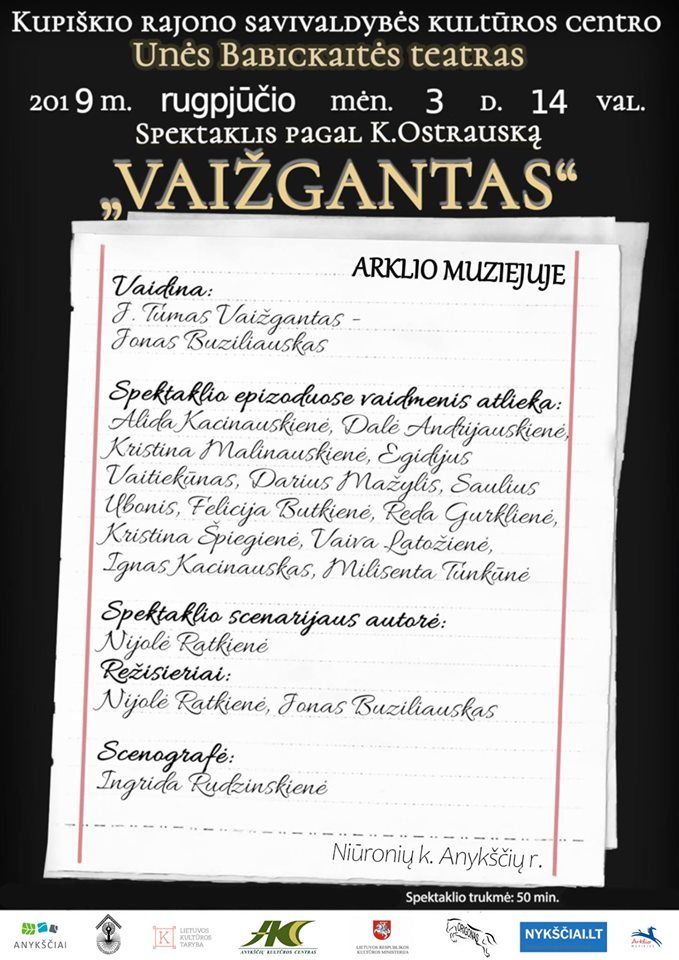 Kupiškio rajono savivaldybės kultūros centro
Unės Babickaitės teatras
2019 m. rugpjūčio mėn. 3 d. 14 val.
Spektaklis pagal K.Ostrauską
„VAIŽGANTAS“
ARKLIO MUZIEJUJE
Vaidina:
J. Tumas Vaižgantas -
Jonas Buziliauskas
Spektaklio epizoduose vaidmenis atlieka:
Alida Kacinauskienė, Dalė Andrijauskienė,
Kristina Malinauskienė, Egidijus
Vaitiekūnas, Darius Mažylis, Saulius
Ubonis, Felicija Butkienė, Reda Gurklienė,
Kristina Špiegienė, Vaiva Latožienė,
Ignas Kacinauskas, Milisenta Tunkūnė
Spektaklio scenarijaus autorė:
Nijolė Ratkienė
Režisieriai:
Nijolė Ratkienė, Jonas Buziliauskas
Scenografė:
Ingrida Rudzinskienė
Niūronių k. Anykščių r.
Spektaklio trukmė: 50 min.
ANYKŠČIAI
LIETUVOS
KULTŪROS
TARYBA
AKC
ANYKŠČIŲ KULTŪROS CENTRAS
LIETUVOS RESPUBLIKOS
KULTŪROS MINISTERIJA
NYKŠČIAI.LT
Arklio
MUZIEJUS